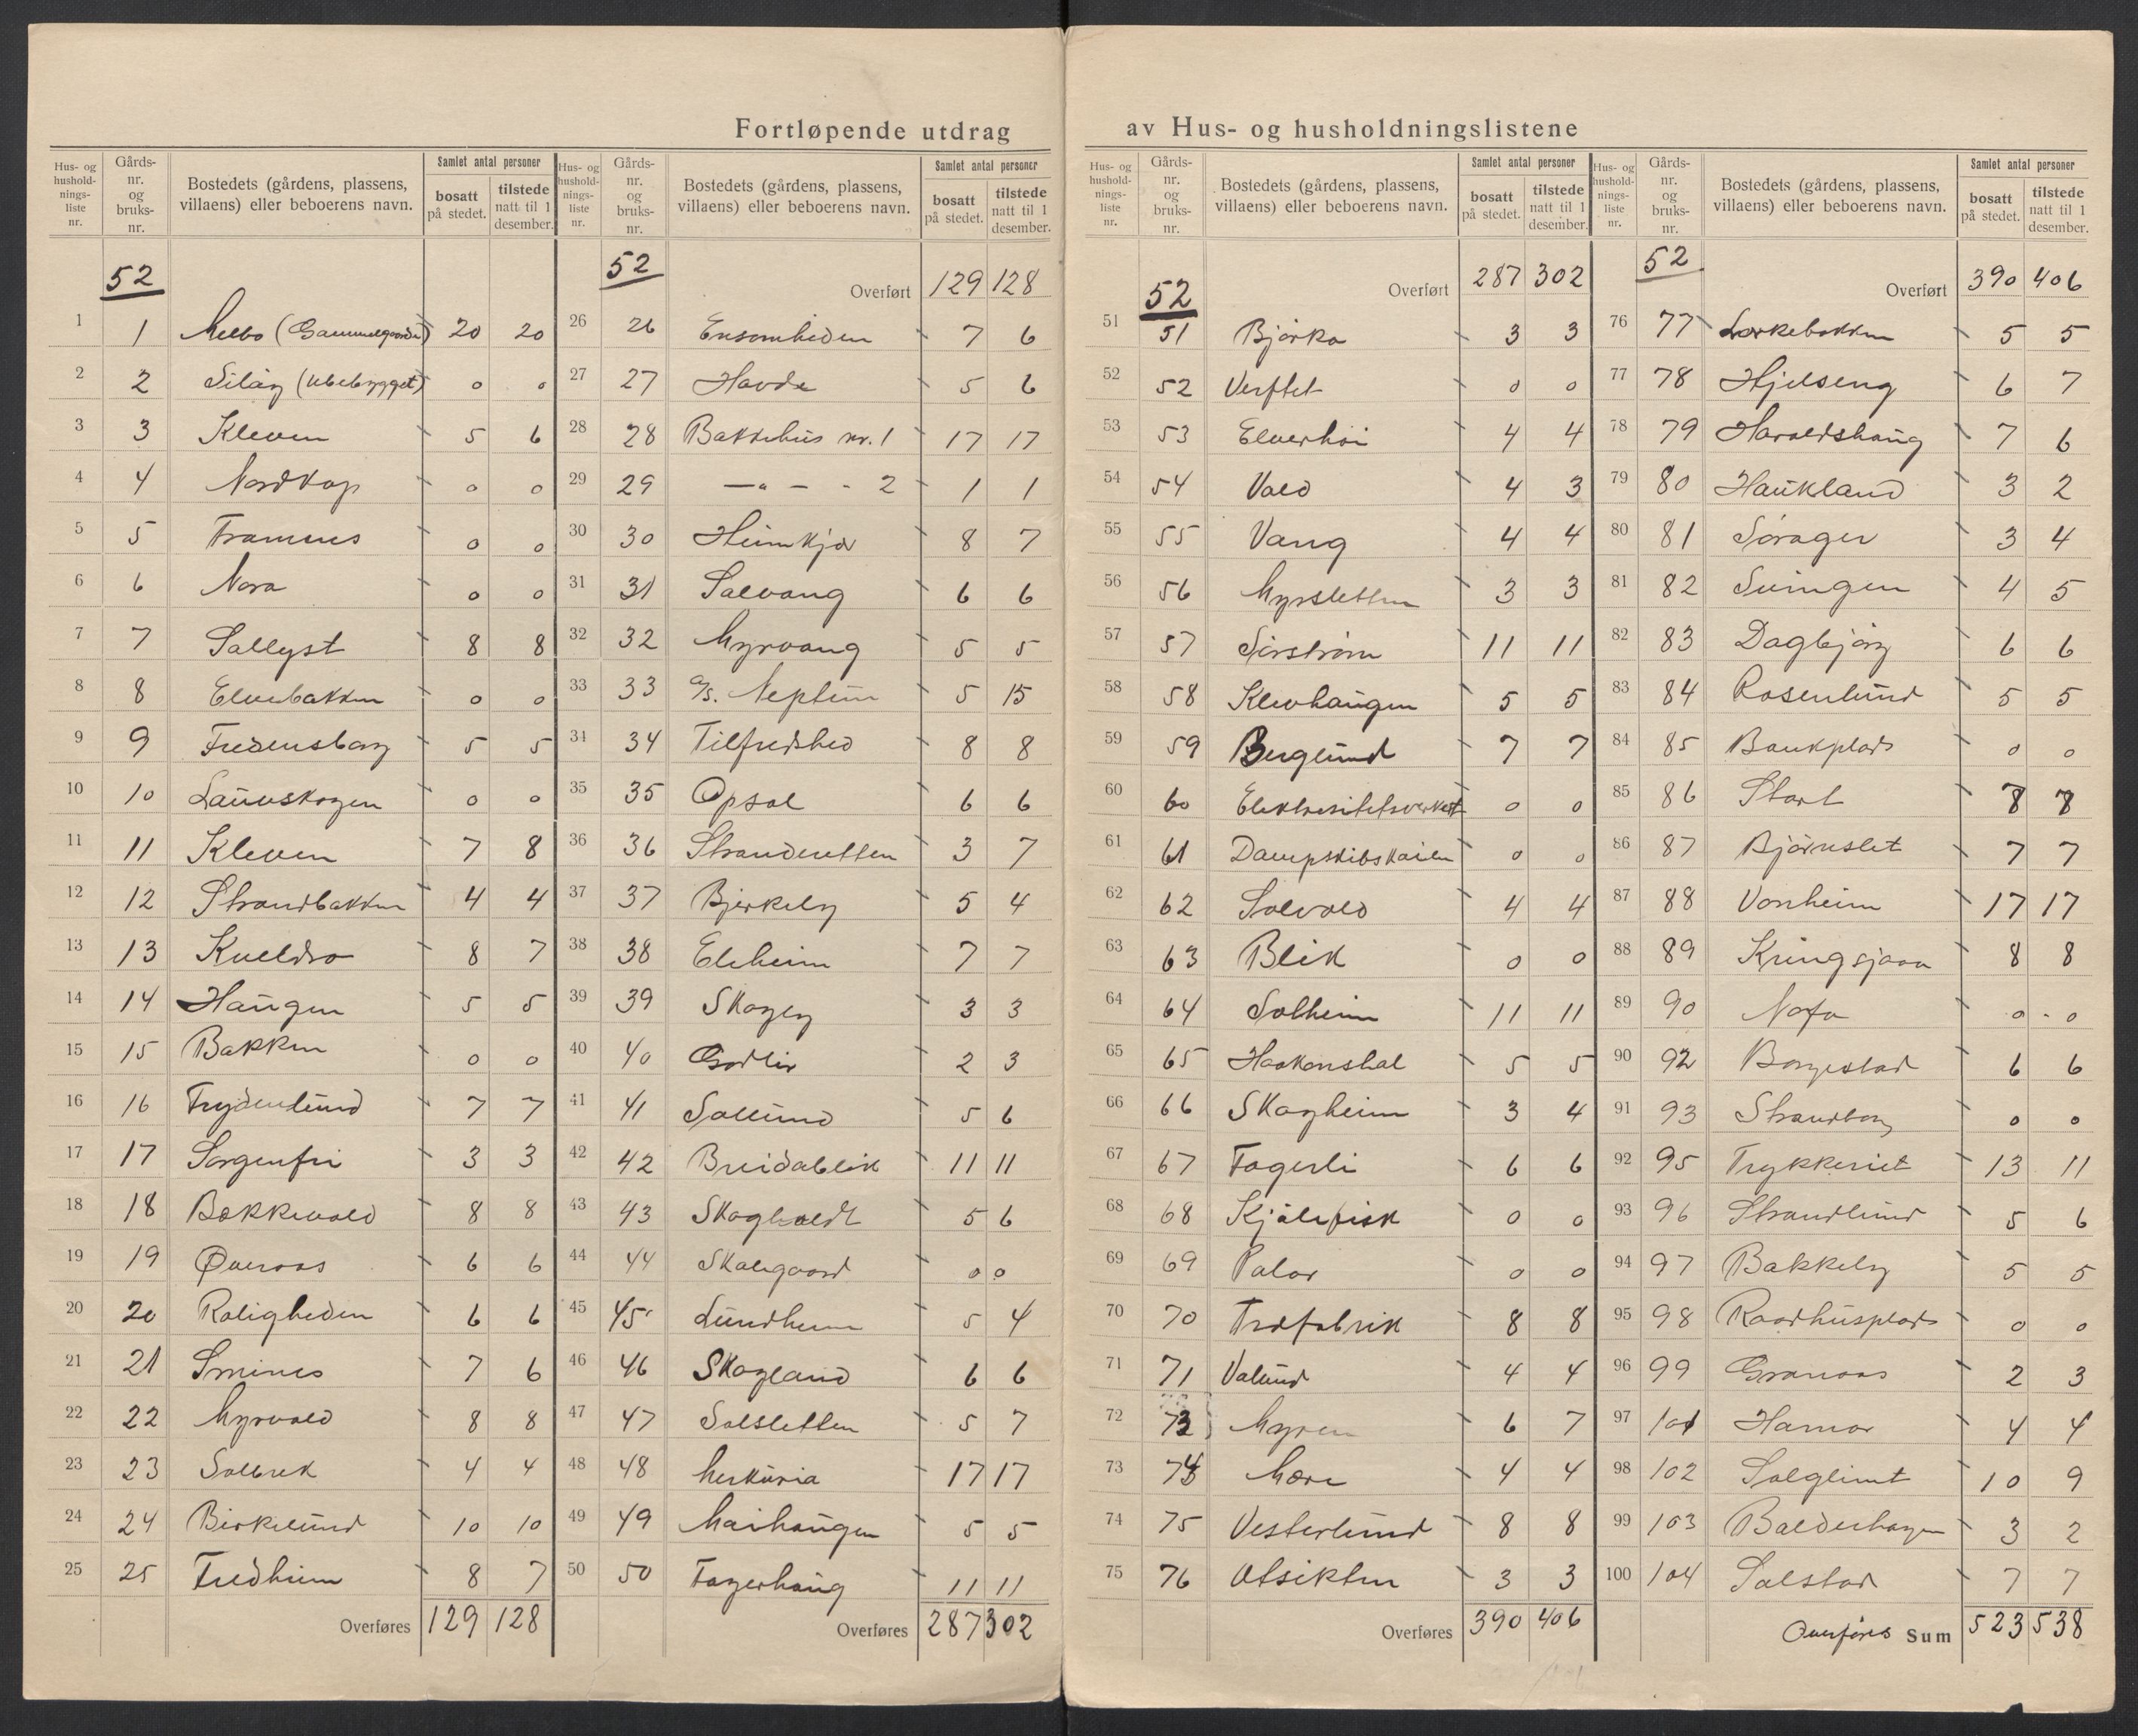 Fortløpende utdrag av Hus- og husholdningslistene
Hus- og husholdnings-liste nr. Gårds-nr. og bruks-nr. Bostedets (gårdens, plassens, villaens) eller beboerens navn. Samlet antal personer bosatt på stedet. tilstede natt til 1 desember.
52
1 1 Melbo (Gammelgaarden) 20 20
2 2 Siläg (ubebygget) 0 0
3 3 Kleven 5 6
4 4 Nordkap 0 0
5 5 Framnes 0 0
6 6 Nora 0 0
7 7 Sollyst 8 8
8 8 Elvebakken 0 0
9 9 Fredensborg 5 5
10 10 Lauvskogen 0 0
11 11 Kleven 7 8
12 12 Strandbakken 4 4
13 13 Kveldro 8 7
14 14 Haugen 5 5
15 15 Bakken 0 0
16 16 Frydenlund 7 7
17 17 Sorgenfri 3 3
18 18 Bakkevold 8 8
19 19 Øveraas 6 6
20 20 Roligheden 6 6
21 21 Smines 7 6
22 22 Myrvold 8 8
23 23 Solbrek 4 4
24 24 Birkelund 10 10
25 25 Fredheim 8 7
Overføres 129 128
Hus- og husholdnings-liste nr. Gårds-nr. og bruks-nr. Bostedets (gårdens, plassens, villaens) eller beboerens navn. Samlet antal personer bosatt på stedet. tilstede natt til 1 desember.
52 Overført 129 128
26 26 Ensomheden 7 6
27 27 Havde 5 6
28 28 Bakkehus nr. 1 17 17
29 29 —"— - 2 1 1
30 30 Heimkjær 8 7
31 31 Solvang 6 6
32 32 Myrvang 5 5
33 33 A/s. Neptun 5 15
34 34 Tilfredshed 8 8
35 35 Opsal 6 6
36 36 Strandsletten 3 7
37 37 Bjerkely 5 4
38 38 Elvheim 7 7
39 39 Skogly 3 3
40 40 Godlir 2 3
41 41 Sollund 5 6
42 42 Breidablik 11 11
43 43 Skogholdt 5 6
44 44 Skolegaard 0 0
45 45 Lundheim 5 4
46 46 Skogland 6 6
47 47 Solsletten 5 7
48 48 Merkuria 17 17
49 49 Maihaugen 5 5
50 50 Fagerhaug 11 11
Overføres 287 302
Hus- og husholdnings-liste nr. Gårds-nr. og bruks-nr. Bostedets (gårdens, plassens, villaens) eller beboerens navn. Samlet antal personer bosatt på stedet. tilstede natt til 1 desember.
52 Overført 287 302
51 51 Bjørka 3 3
52 52 Verftet 0 0
53 53 Elverhøi 4 4
54 54 Vold 4 3
55 55 Vang 4 4
56 56 Myrsletten 3 3
57 57 Sørstrøm 11 11
58 58 Klevhaugen 5 5
59 59 Berglund 7 7
60 60 Elektrisitetsverket 0 0
61 61 Dampskibskaien 0 0
62 62 Solvold 4 4
63 63 Blik 0 0
64 64 Solheim 11 11
65 65 Haakonshal 5 5
66 66 Skogheim 3 4
67 67 Fagerli 6 6
68 68 Kjølefisk 0 0
69 69 Polar 0 0
70 70 Tredfabrik 8 8
71 71 Valund 4 4
72 73 Myren 6 7
73 74 Mære 4 4
74 75 Vesterlund 8 8
75 76 Utsikten 3 3
Overføres 390 406
Hus- og husholdnings-liste nr. Gårds-nr. og bruks-nr. Bostedets (gårdens, plassens, villaens) eller beboerens navn. Samlet antal personer bosatt på stedet. tilstede natt til 1 desember.
52 Overført 390 406
76 77 Lorkebakken 5 5
77 78 Hjelseng 6 7
78 79 Haraldshaug 7 6
79 80 Haukland 3 2
80 81 Sørager 3 4
81 82 Svingen 4 5
82 83 Dagbjørg 6 6
83 84 Rosenlund 5 5
84 85 Bankplads 0 0
85 86 Start 8 8
86 87 Bjørnslet 7 7
87 88 Vonheim 17 17
88 89 Kringsjaa 8 8
89 90 Nofo 0 0
90 92 Borgestad 6 6
91 93 Strandborg 0 0
92 95 Trykkeriet 13 11
93 96 Strandlund 5 6
94 97 Bakkely 5 5
95 98 Raadhusplads 0 0
96 99 Granaas 2 3
97 101 Hamar 4 4
98 102 Solglimt 10 9
99 103 Balderhagen 3 2
100 104 Solstad 7 7
Overføres Sum 523 538